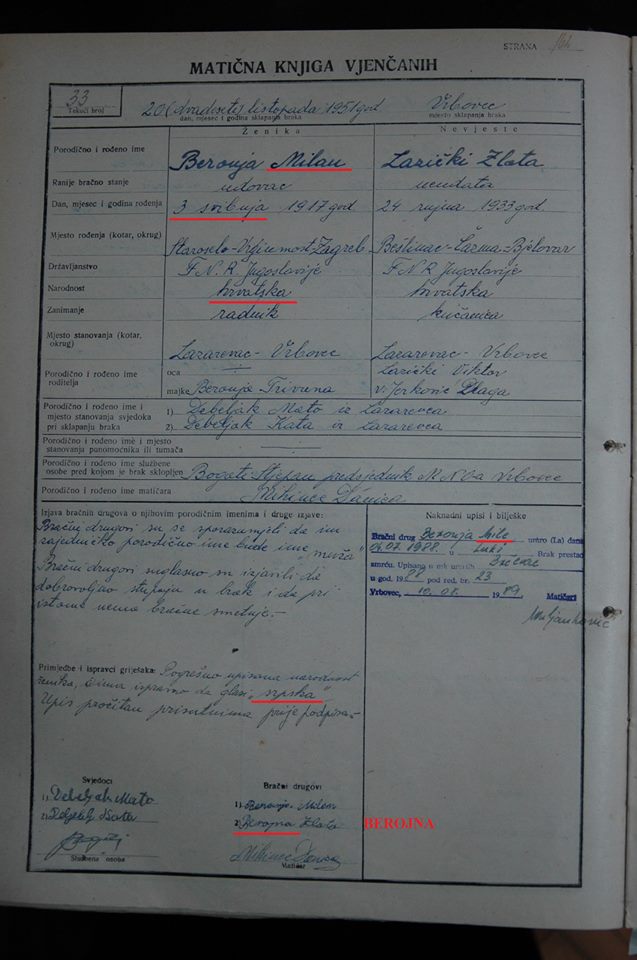 STRANA 144
MATIČNA KNJIGA VJENČANIH
33
Tekući broj
20 (dvadeseti) listopada 1951 god
dan, mjesec i godina sklapanja braka
Vrbovec
mjesto sklapanja braka
Ženika
Nevjeste
Porodično i rođeno ime
Beronja Milan
Lazički Zlata
Ranije bračno stanje
udovac
neudata
Dan, mjesec i godina rođenja
3 svibnja 1917 god
24 rujna 1933 god
Mjesto rođenja (kotar, okrug)
Staroselo - Vrgin most Zagreb
Beštinac - Čazma - Bjelovar
Državljanstvo
F.N.R. Jugoslavije
F.N.R. Jugoslavije
Narodnost
hrvatska
hrvatska
Zanimanje
radnik
kućanica
Mjesto stanovanja (kotar, okrug)
Lazarevac - Vrbovec
Lazarevac - Vrbovec
Porodično i rođeno ime roditelja
oca
Lazički Viktor
majke Beronja Trivuna
r. Jerković Draga
Porodično i rođeno ime i mjesto stanovanja svjedoka pri sklapanju braka
1) Debeljak Mato iz Lazarevca
2) Debeljak Kata iz Lazarevca
Porodično i rođeno ime i mjesto stanovanja punomoćnika ili tumača
Porodično i rođeno ime službene osobe pred kojom je brak sklopljen
Bogati Stjepan predsjednik M.N.O-a Vrbovec
Porodično i rođeno ime matičara
Mihinec Danica
Izjava bračnih drugova o njihovim porodičnim imenima i druge izjave:
Bračni drugovi su se sporazumjeli da im
zajedničko porodično ime bude ime „muža"
Bračni drugovi suglasno su izjavili da
dobrovoljno stupaju u brak i da pri
istome nema bračne smetnje.-
Naknadni upisi i bilješke
Bračni drug Beronja Mile umro (la) dana
04.07.1988. u Luki Brak prestao
smrću. Upisano u mk umrlih
u god. 1988 pod red. br. 23
Vrbovec, 10.08. 1989 Matičar:
Primjedbe i ispravci griješaka: Pogrešno upisana narodnost
ženika, čima ispravno da glasi „srpska"
Upis pročitan prisutnima prije potpisa.-
Svjedoci
1) Debeljak Mato
2) Debeljak Kata
Službena osoba
Bračni drugovi:
1) Beronja Milan
2) Berojna Zlata
BEROJNA
Mihinec Danica
Matičar